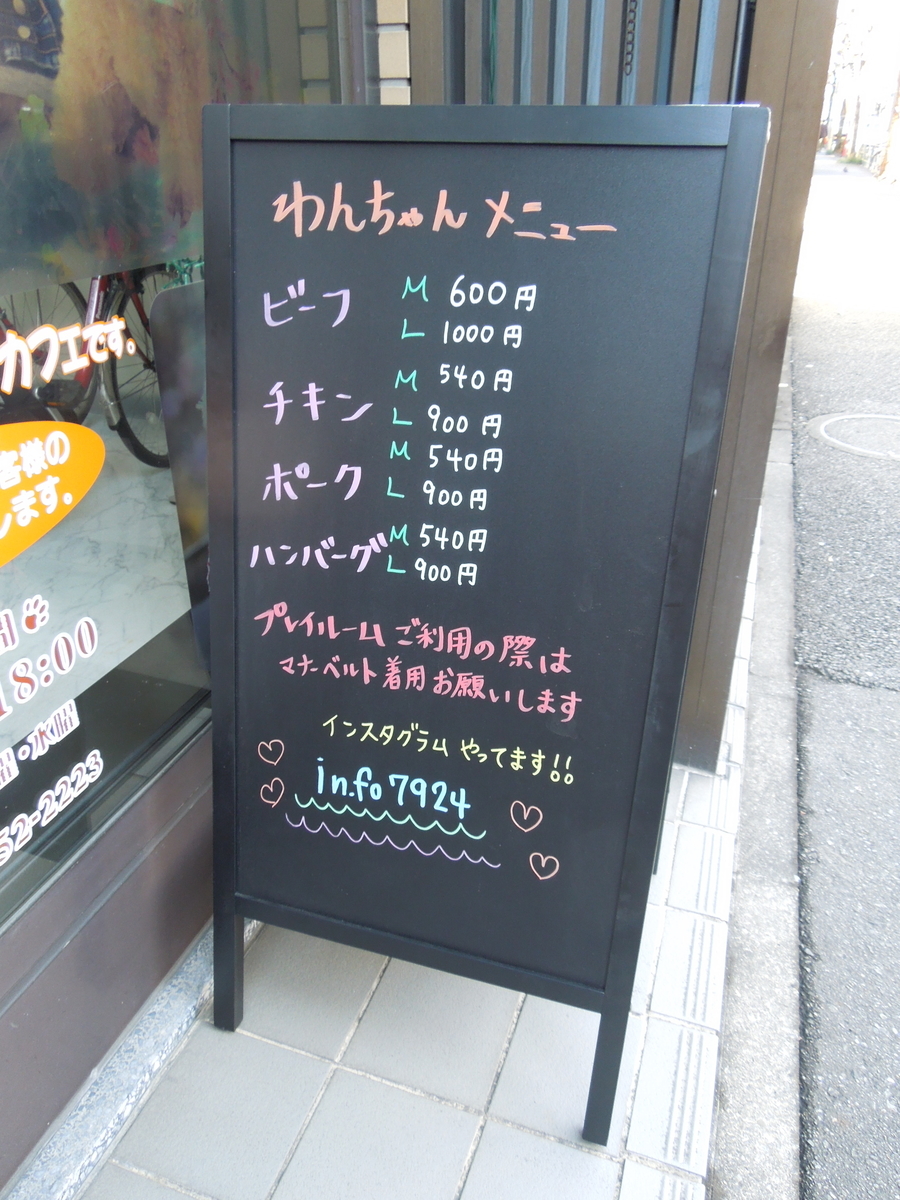 わんちゃん メニュー
ビーフ M 600円
L 1000円
チキン M 540円
L 900円
ポーク M 540円
L 900円
ハンバーグ M 540円
L 900円
プレイルーム ご利用の際は
マナーベルト着用お願いします
インスタグラム やってます!!
in.fo7924
カフェです。
客様の
します。
18:00
・水曜
52-2223